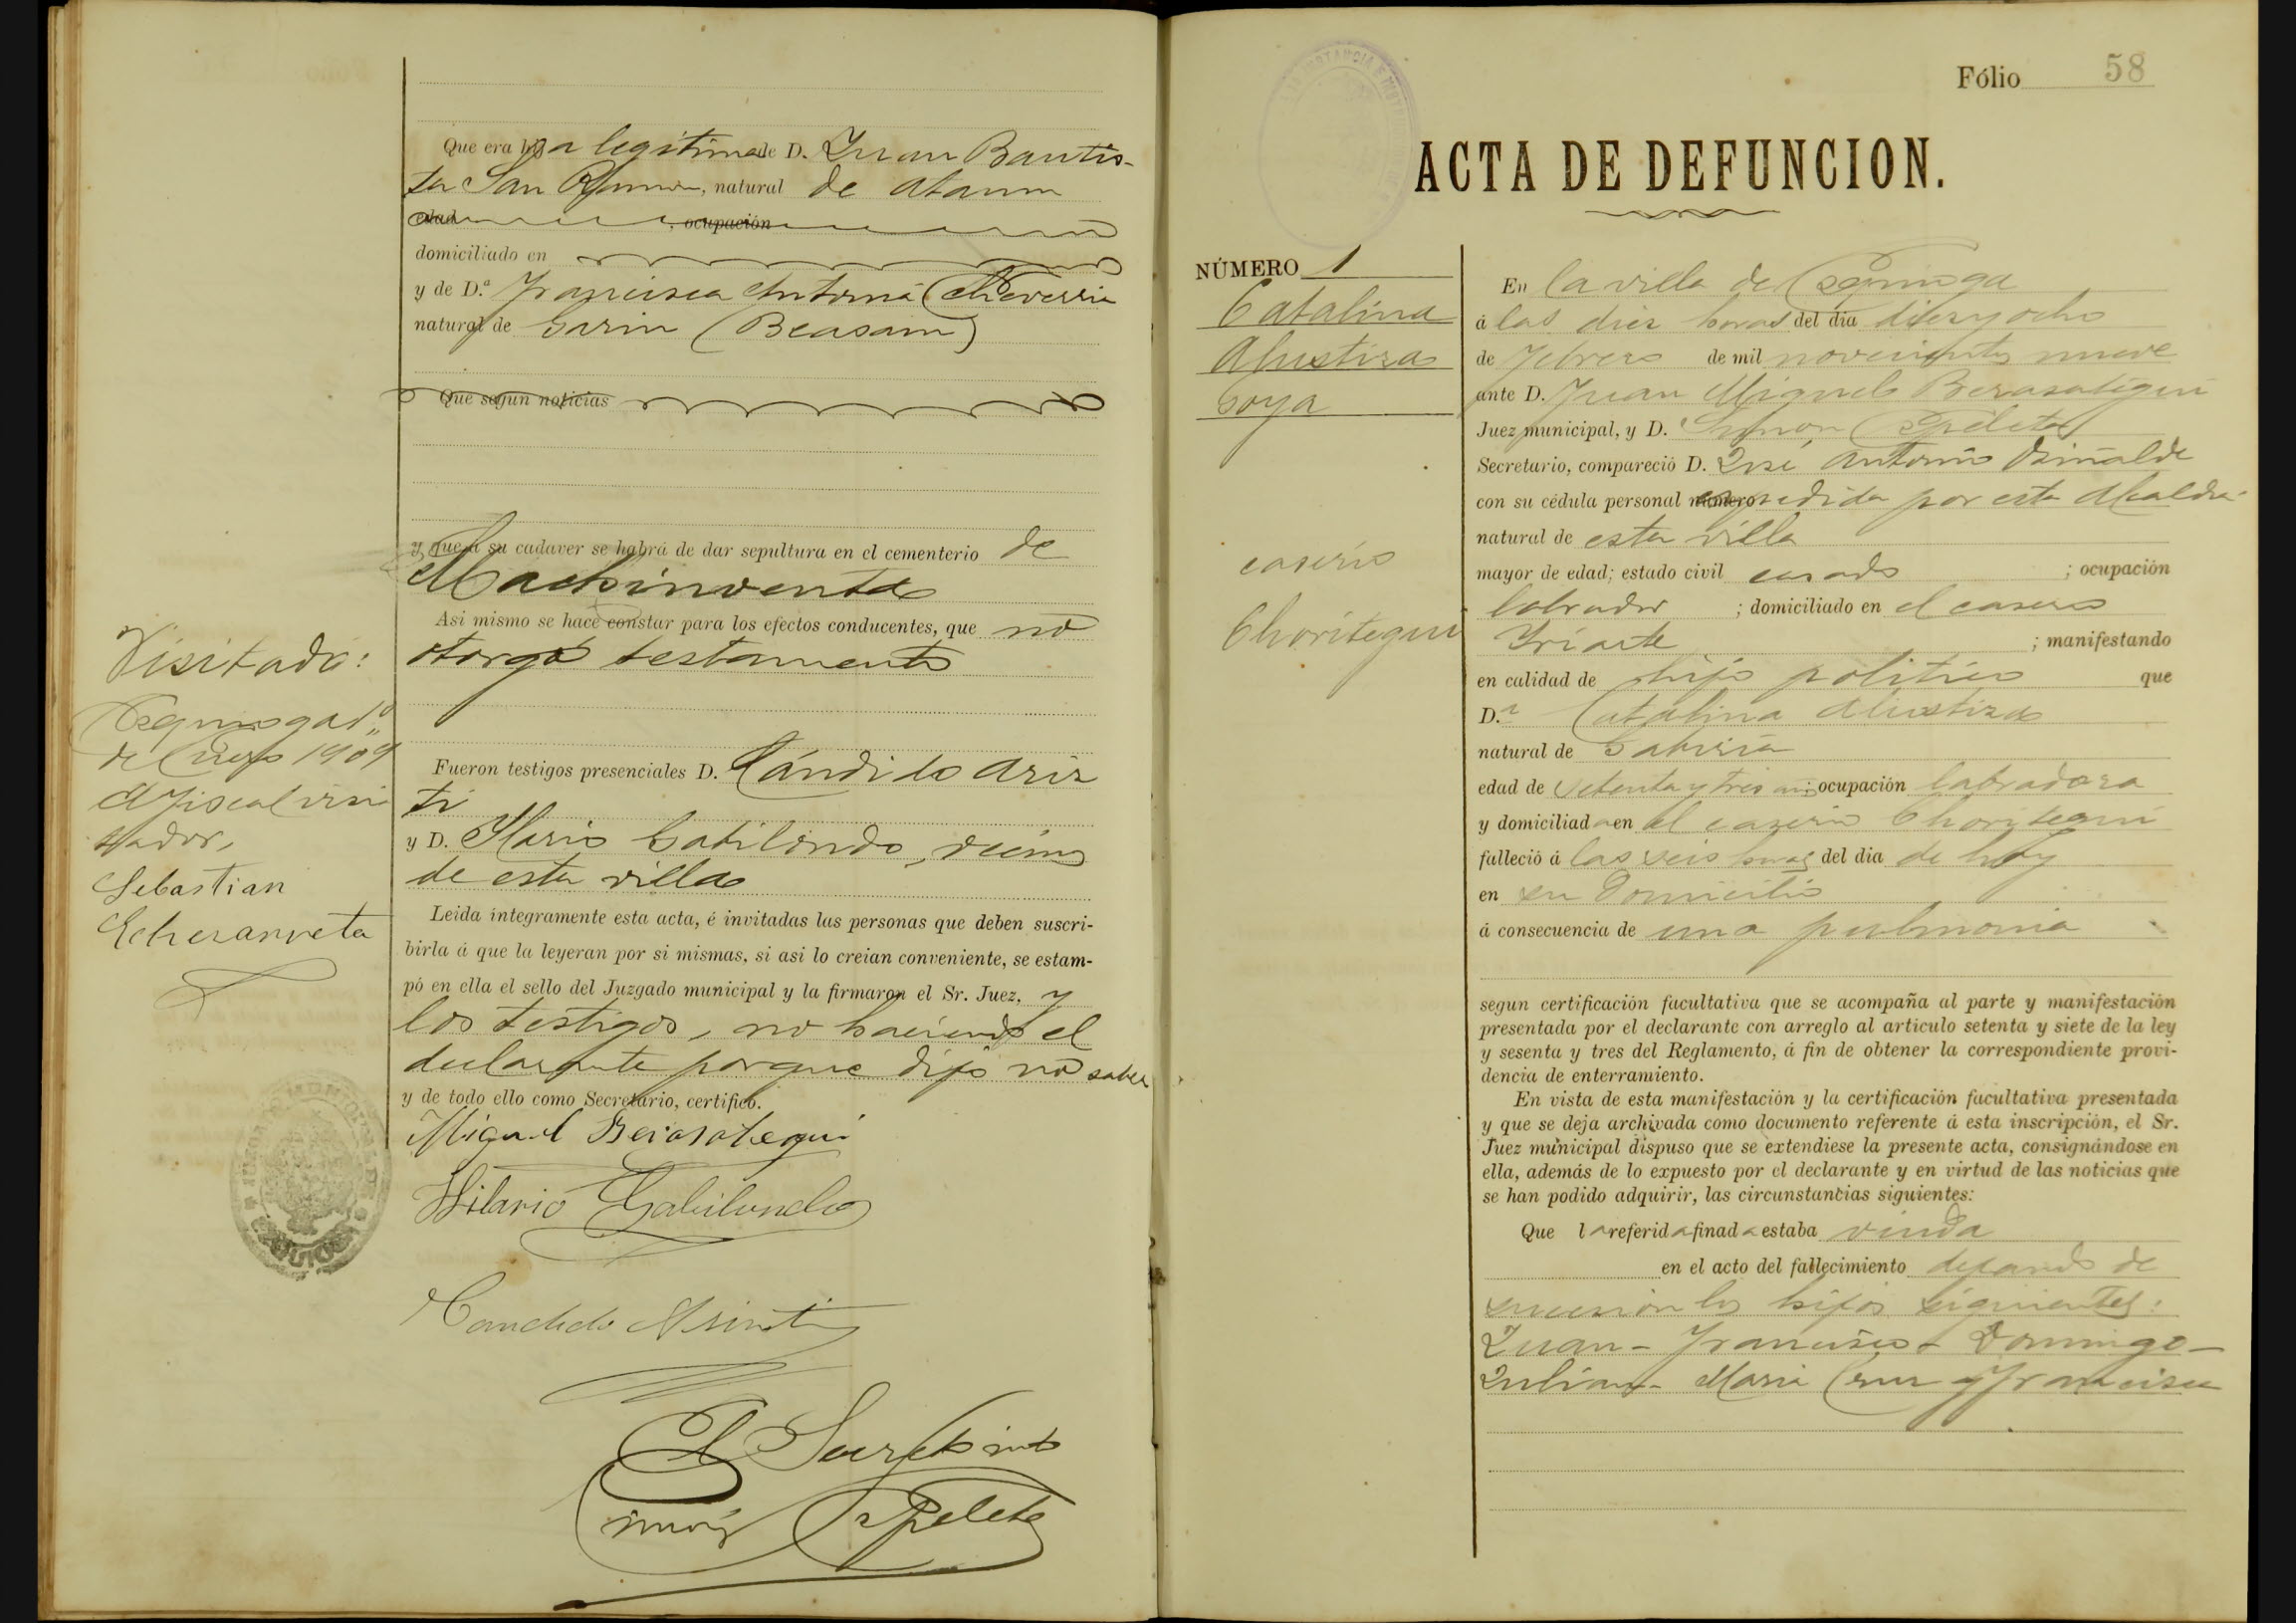 Que era hija legitima de D. Juan Bautis-
ta San Roman, natural de Ataun
edad , ocupación
domiciliado en
y de D.ª Francisca Antonia Echeverria
natural de Garin (Beasain)
Que segun noticias
y que á su cadaver se habrá de dar sepultura en el cementerio de
Machinventa
Asi mismo se hace constar para los efectos conducentes, que no
otorgó testamento
Fueron testigos presenciales D. Cándido Ariz
ti
y D. Ylario Gabilondo, vecinos
de esta villa
Leida íntegramente esta acta, é invitadas las personas que deben suscri-
birla á que la leyeran por si mismas, si asi lo creian conveniente, se estam-
pó en ella el sello del Juzgado municipal y la firmaron el Sr. Juez, y
los testigos, no haciendo el
declarante porque dijo no saber
y de todo ello como Secretario, certifico.
Miguel Berasategui
Hilario Gabilondo
Candido Arizti
El Secretario
Simón Espeleta
Visitado:
de Enero 1909
El fiscal visi
tador,
Sebastian
Echezarreta
Fólio 58
ACTA DE DEFUNCION.
NÚMERO 1
Catalina
Alustiza
Goya
caserio
Choritegui
En la villa de Ezquioga
á las diez horas del dia diez y ocho
de Febrero de mil novecientos nueve
ante D. Juan Miguel Berasategui
Juez municipal, y D. Simón Espeleta
Secretario, compareció D. José Antonio
con su cédula personal número expedida por esta Alcaldia
natural de esta villa
mayor de edad; estado civil casado ; ocupación
labrador ; domiciliado en el caserio
Yriarte ; manifestando
en calidad de hijo politico que
D.ª Catalina Alustiza
natural de Gabiria
edad de setenta y tres años ; ocupación labradora
y domiciliada en el caserio Choritegui
falleció á las seis horas del dia de hoy
en su domicilio
á consecuencia de una pulmonia
segun certificación facultativa que se acompaña al parte y manifestación
presentada por el declarante con arreglo al articulo setenta y siete de la ley
y sesenta y tres del Reglamento, á fin de obtener la correspondiente provi-
dencia de enterramiento.
En vista de esta manifestación y la certificación facultativa presentada
y que se deja archivada como documento referente á esta inscripción, el Sr.
Juez municipal dispuso que se extendiese la presente acta, consignándose en
ella, además de lo expuesto por el declarante y en virtud de las noticias que
se han podido adquirir, las circunstancias siguientes:
Que la referida finada estaba viuda
en el acto del fallecimiento dejando de
sucesión los hijos siguientes:
Juan - Francisco - Domingo -
Julian - Maria Cruz y Francisca